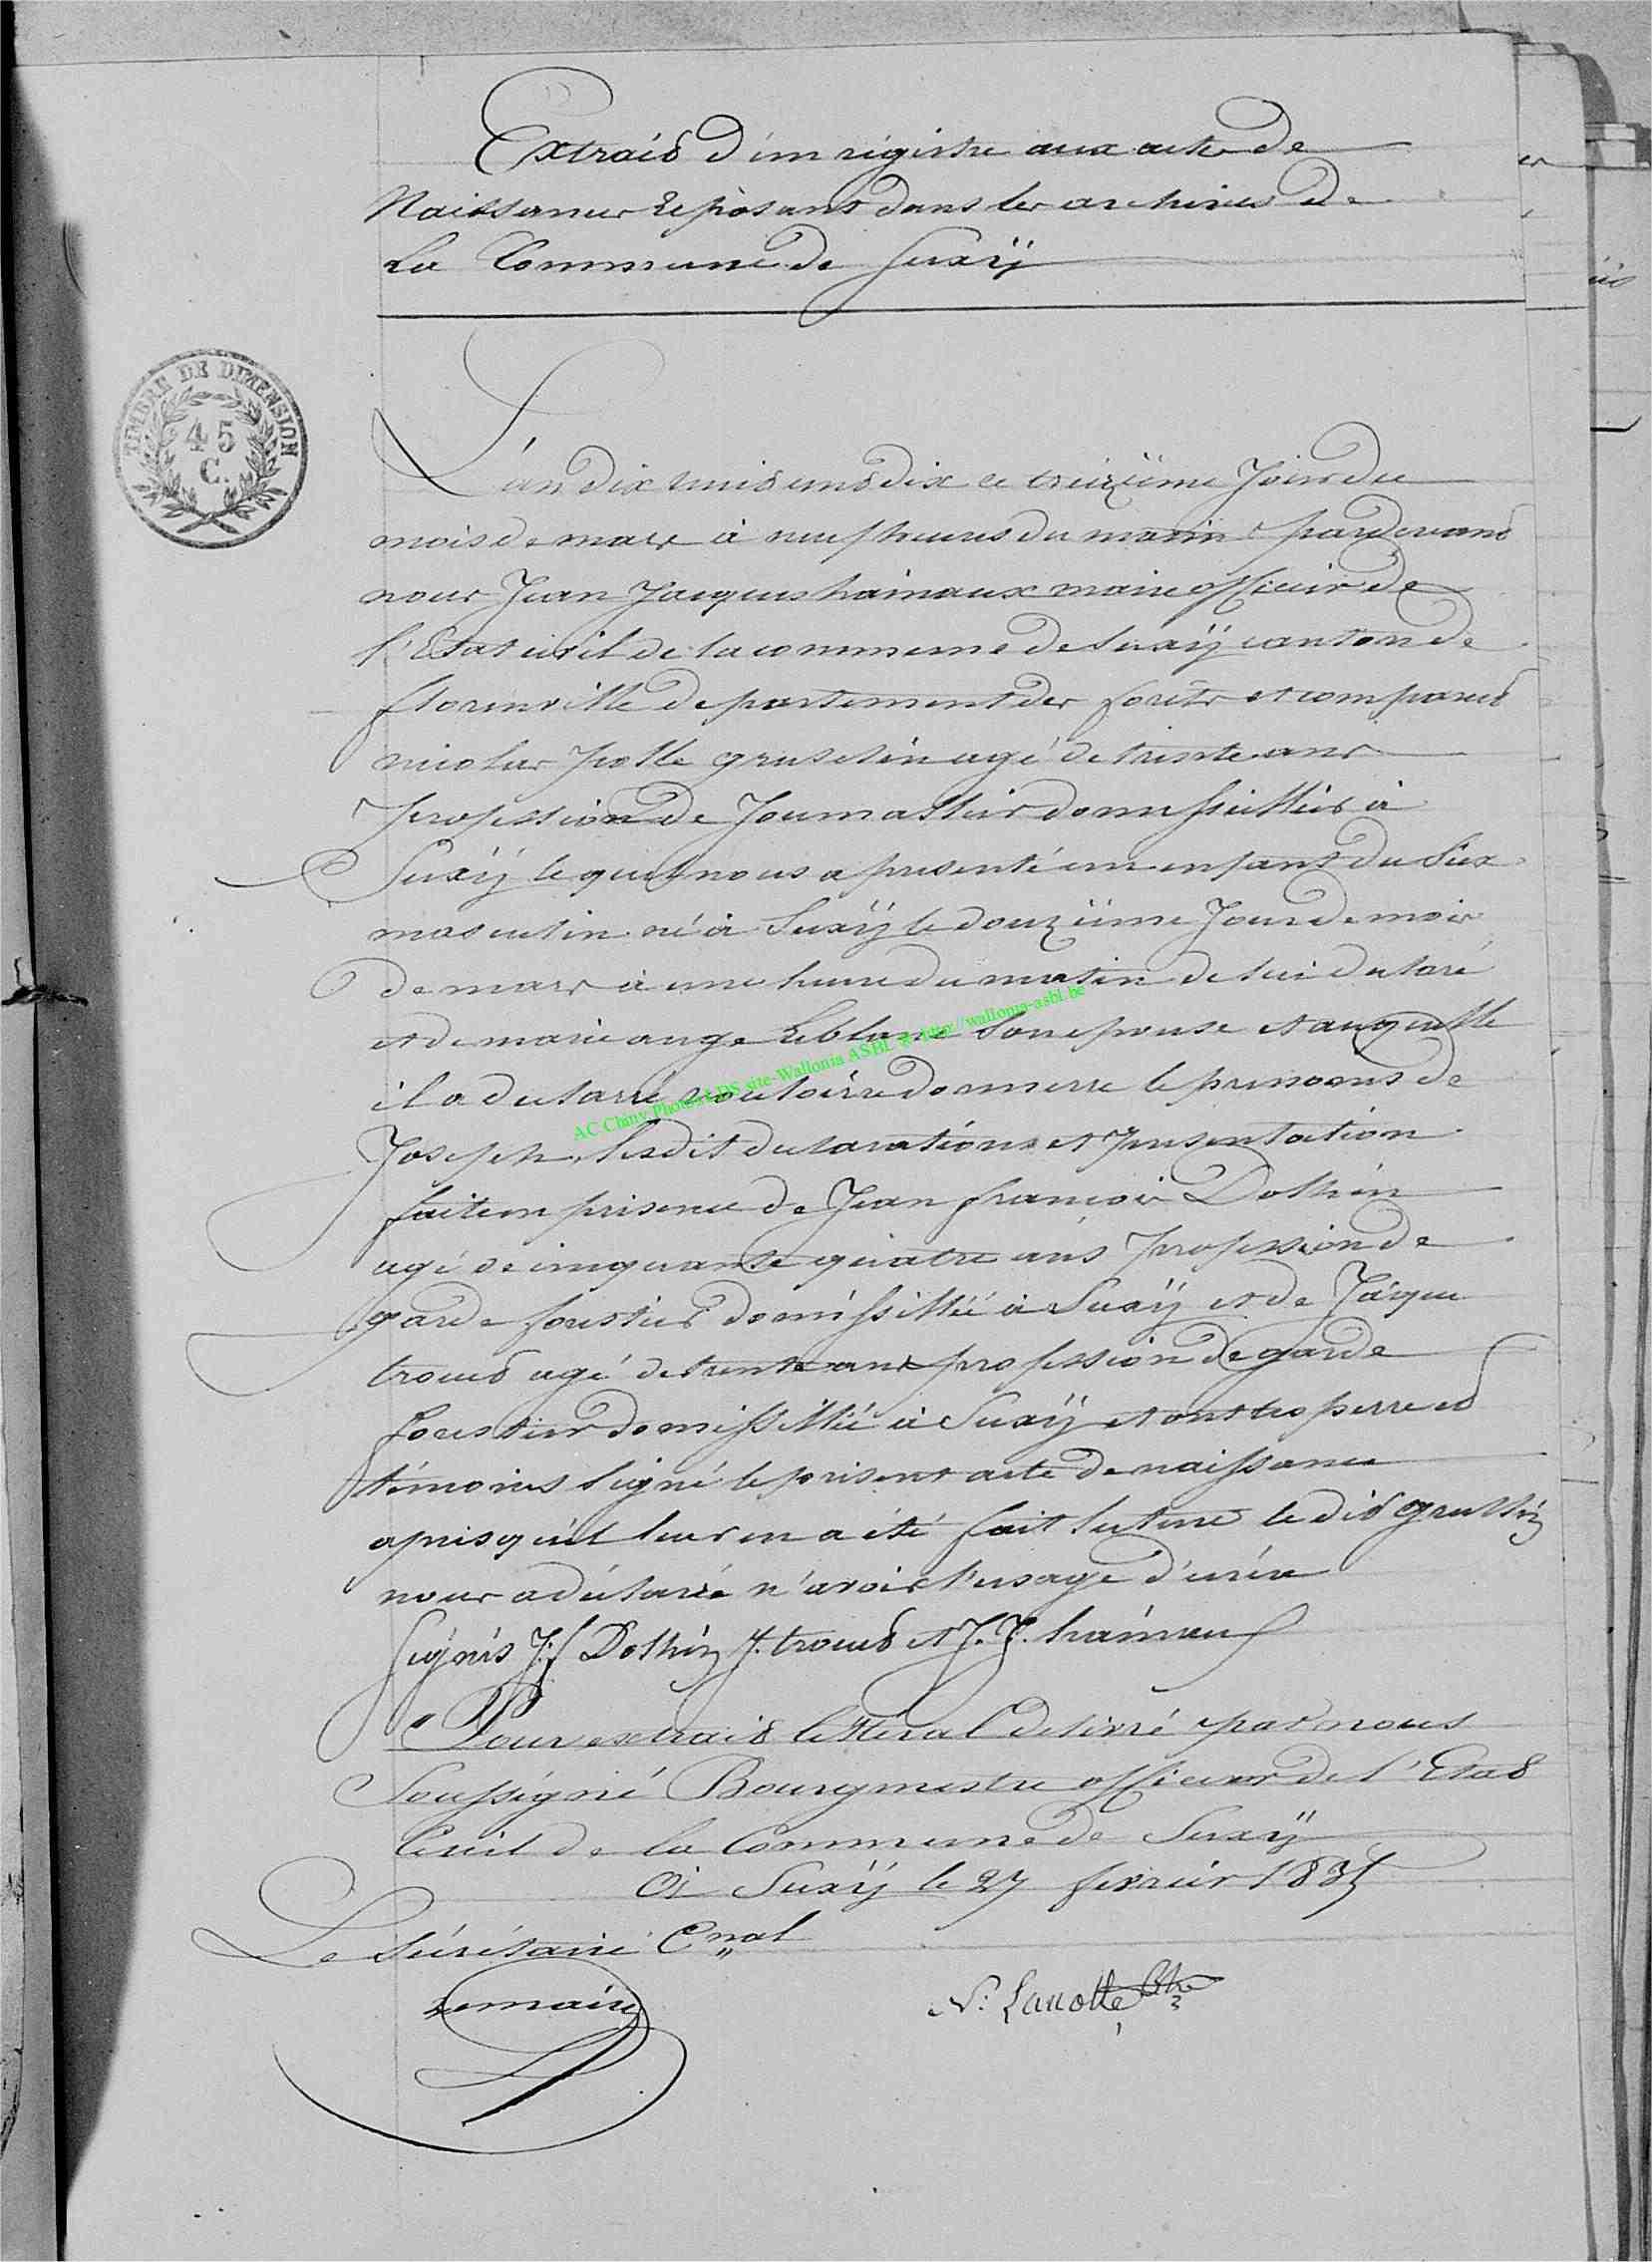 Extrait d'un régistre aux acte de
Naissances Reposant dans les archives de
La Commune de Suxÿ
TIMBRE DE DIMENSION
45
C.
L'an dix huit cent dix ce treiziéme Jour du
mois de mars à neuf heures du matin pardevant
nous Jean Jacques hainaux maire officier de
l'Etat civil de la commune de Suxÿ canton de
florenville departement des forêts et comparut
nicolas grusselin agé de trente ans
profession de Journallier domissillier à
Suxÿ lequel nous a presenté un enfant du Sex
masculin né à Suxÿ le douziéme Jour de mois
de mars à une heure du matin de lui declaré
et de marie ange Leblanc Son epouse et auquelle
il a declarré vouloire donnerre le prenoms de
Joseph, lesdit declarations et presentation
fait en presence de Jean françois Dothin
agé de cinquante quatre ans profession de
garde forestier domissillié à Suxÿ et de Jacque
agé de trente ans profession de garde
forestier domissillié à Suxÿ et ont les perre et
témoins Signé le present acte de naissance
apris qu'il leur en a été fait lecture le dit
nous a déclarée n'avoir l'usage d'écrire
Signés J: f Dothin J. et J. J. hainaux
Pour extrait litteral delivré par nous
Soussigné Bourgmestre officier de l'Etat
Civil de la Commune de Suxÿ
a Suxÿ le 27 fevrier 1835
Le Sécrétaire Cnal
Lemaire
N: Lanotte
AC Chiny Photos LDS site Wallonia ASBL © http://wallonia-asbl.be